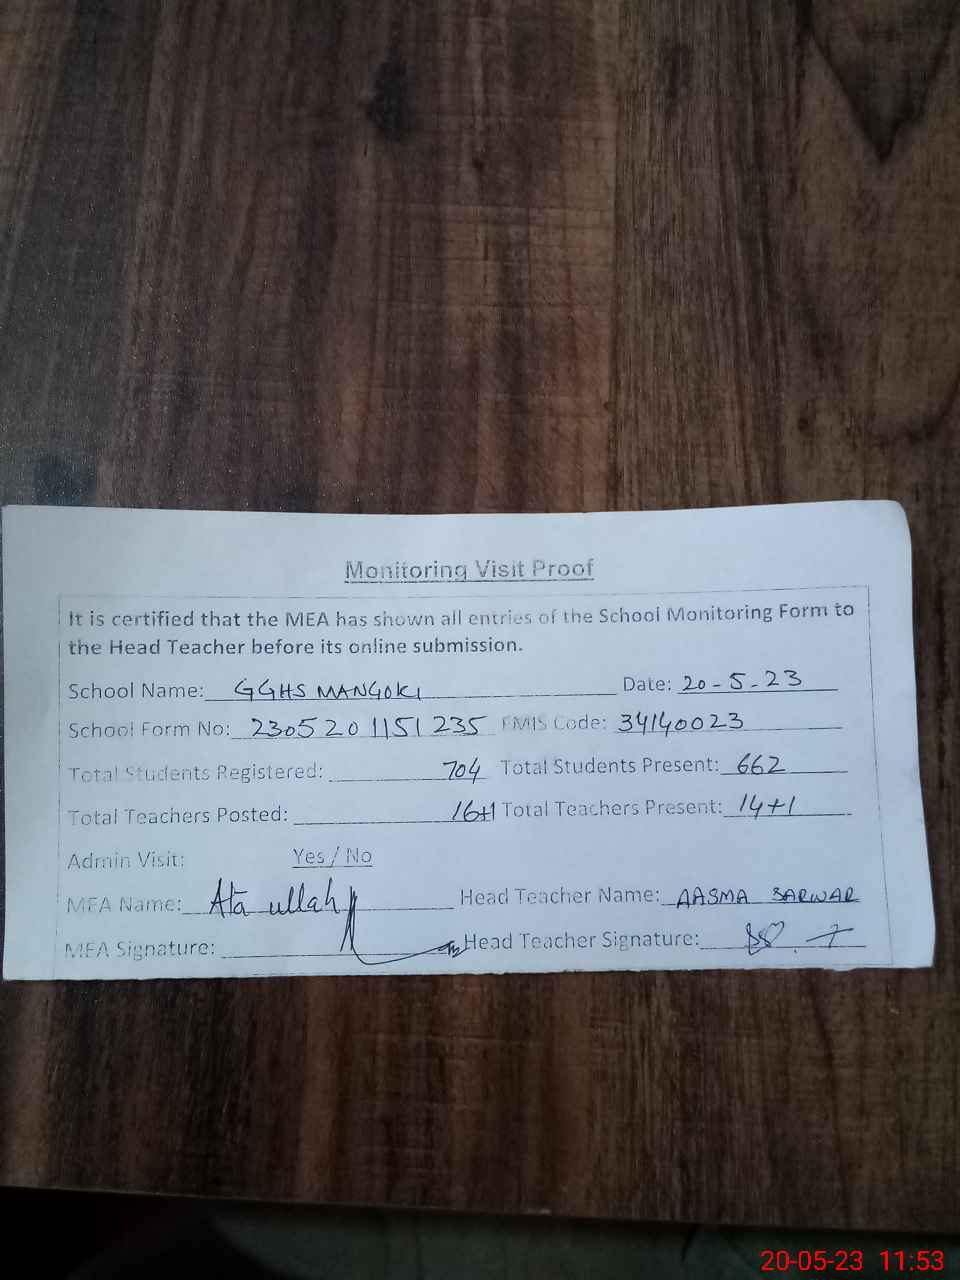 Monitoring Visit Proof
It is certified that the MEA has shown all entries of the School Monitoring Form to
the Head Teacher before its online submission.
School Name: GGHS MANGOKI Date: 20-5-23
School Form No: 2305201151235 EMIS Code: 34140023
Total Students Registered: 704 Total Students Present: 662
Total Teachers Posted: 16+1 Total Teachers Present: 14+1
Admin Visit: Yes / No
MEA Name: Ata ullah Head Teacher Name: AASMA SARWAR
MEA Signature: Head Teacher Signature:
20-05-23 11:53